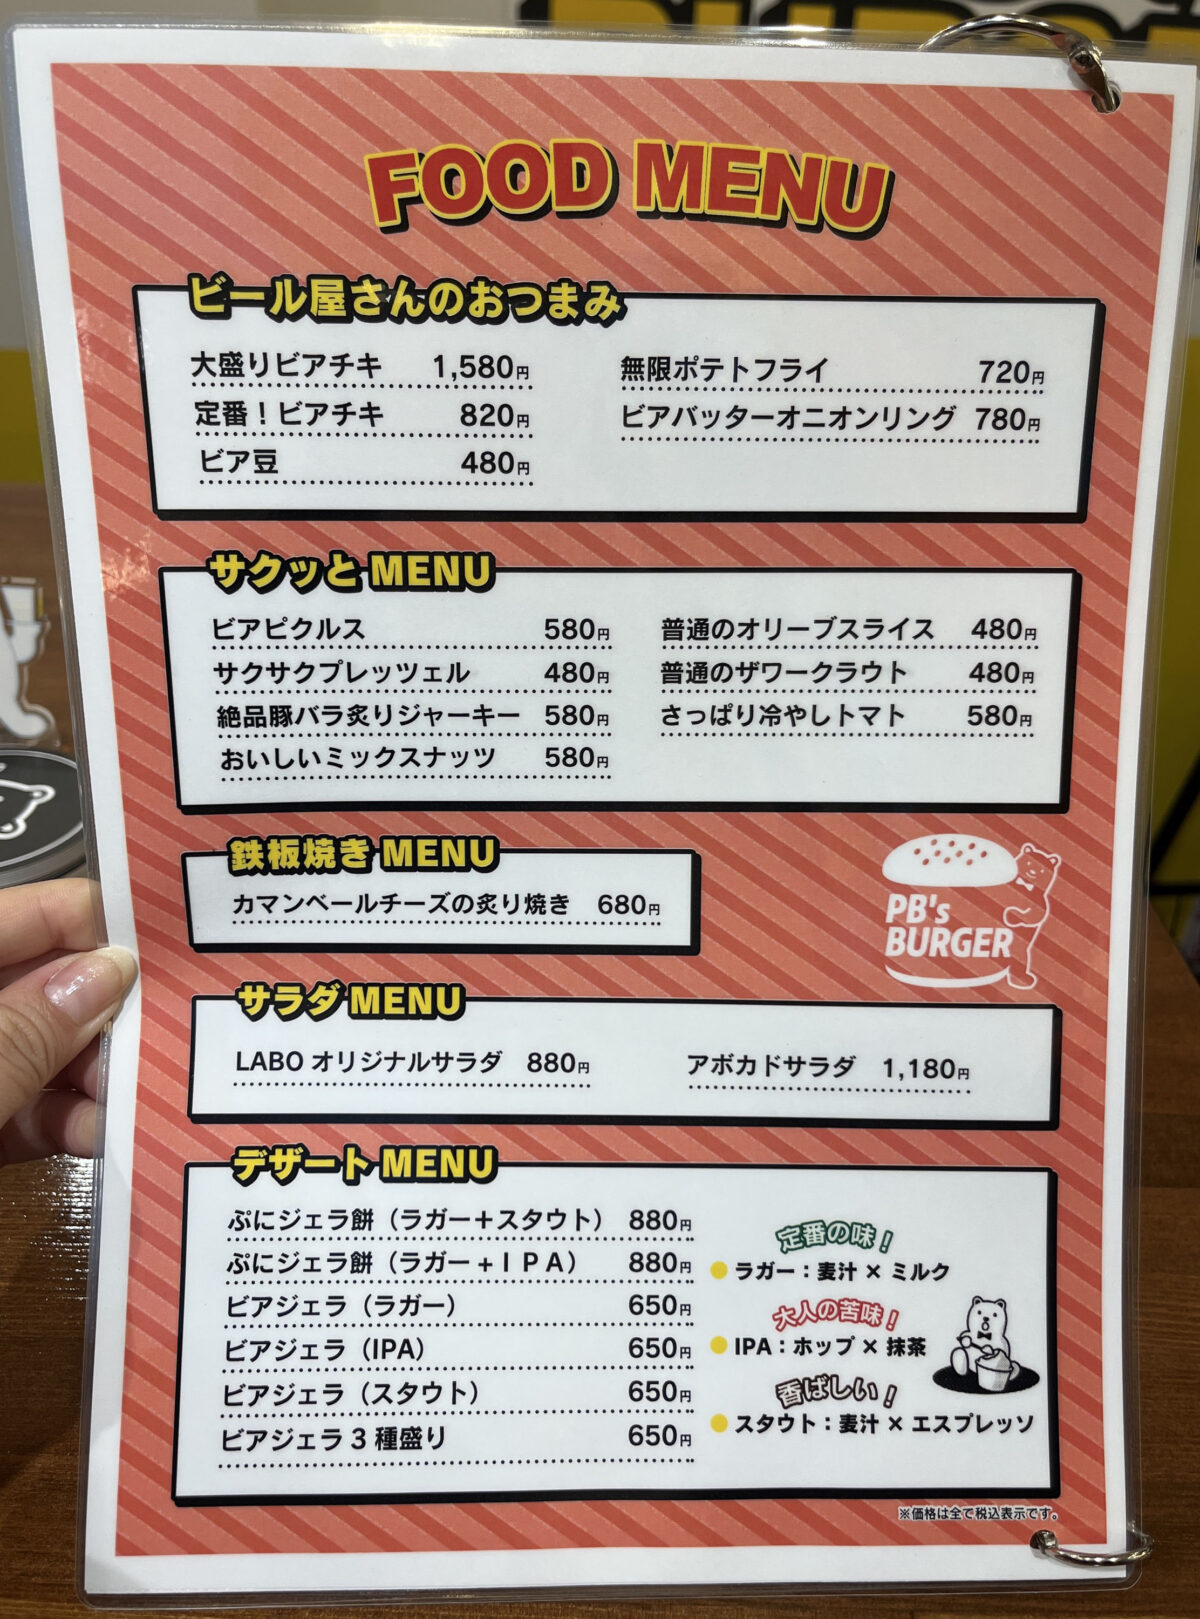 FOOD MENU
ビール屋さんのおつまみ
大盛りビアチキ 1,580円
定番！ビアチキ 820円
ビア豆 480円
無限ポテトフライ 720円
ビアバッターオニオンリング 780円
サクッとMENU
ビアピクルス 580円
サクサクプレッツェル 480円
絶品豚バラ炙りジャーキー 580円
おいしいミックスナッツ 580円
普通のオリーブスライス 480円
普通のザワークラウト 480円
さっぱり冷やしトマト 580円
鉄板焼きMENU
カマンベールチーズの炙り焼き 680円
PB's
BURGER
サラダMENU
LABOオリジナルサラダ 880円
アボカドサラダ 1,180円
デザートMENU
ぷにジェラ餅（ラガー＋スタウト） 880円
ぷにジェラ餅（ラガー＋ＩＰＡ） 880円
ビアジェラ（ラガー） 650円
ビアジェラ（IPA） 650円
ビアジェラ（スタウト） 650円
ビアジェラ3種盛り 650円
定番の味！
ラガー：麦汁×ミルク
大人の苦味！
IPA：ホップ×抹茶
香ばしい！
スタウト：麦汁×エスプレッソ
※価格は全て税込表示です。